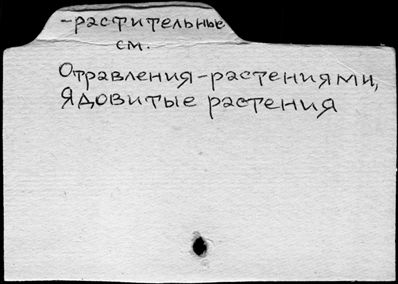 -растительные
см.
Отравления-растениями,
Ядовитые растения